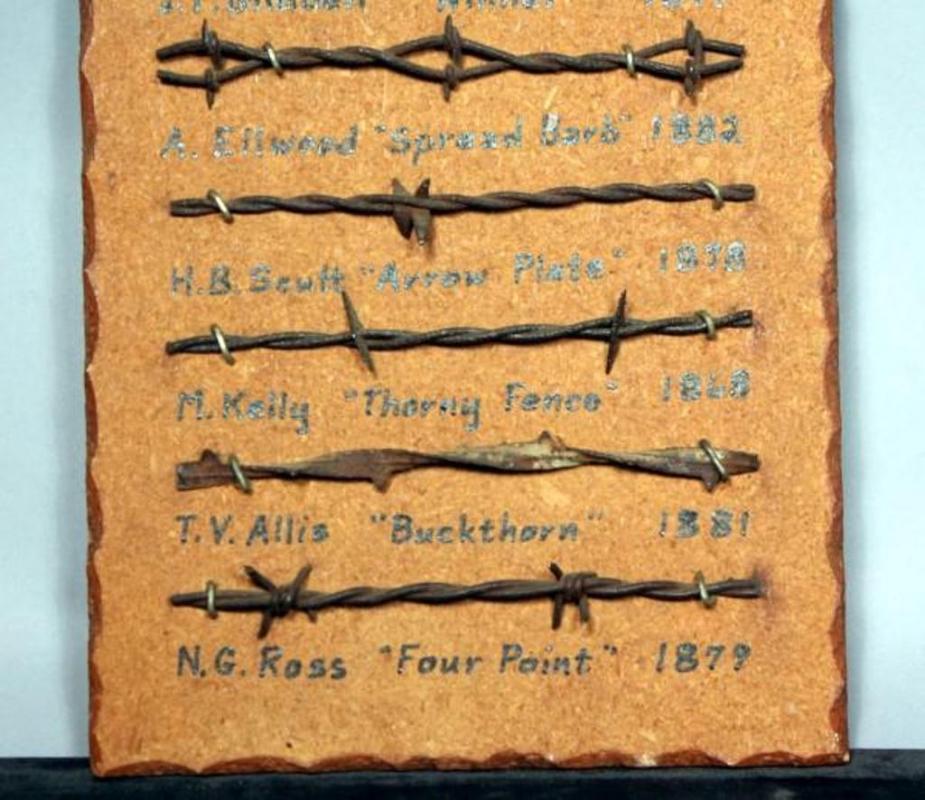 A. Ellwood "Spread Barb" 1882
H.B. Scutt "Arrow Plate" 1878
M. Kelly "Thorny Fence" 1868
T.V. Allis "Buckthorn" 1881
N.G. Ross "Four Point" 1879